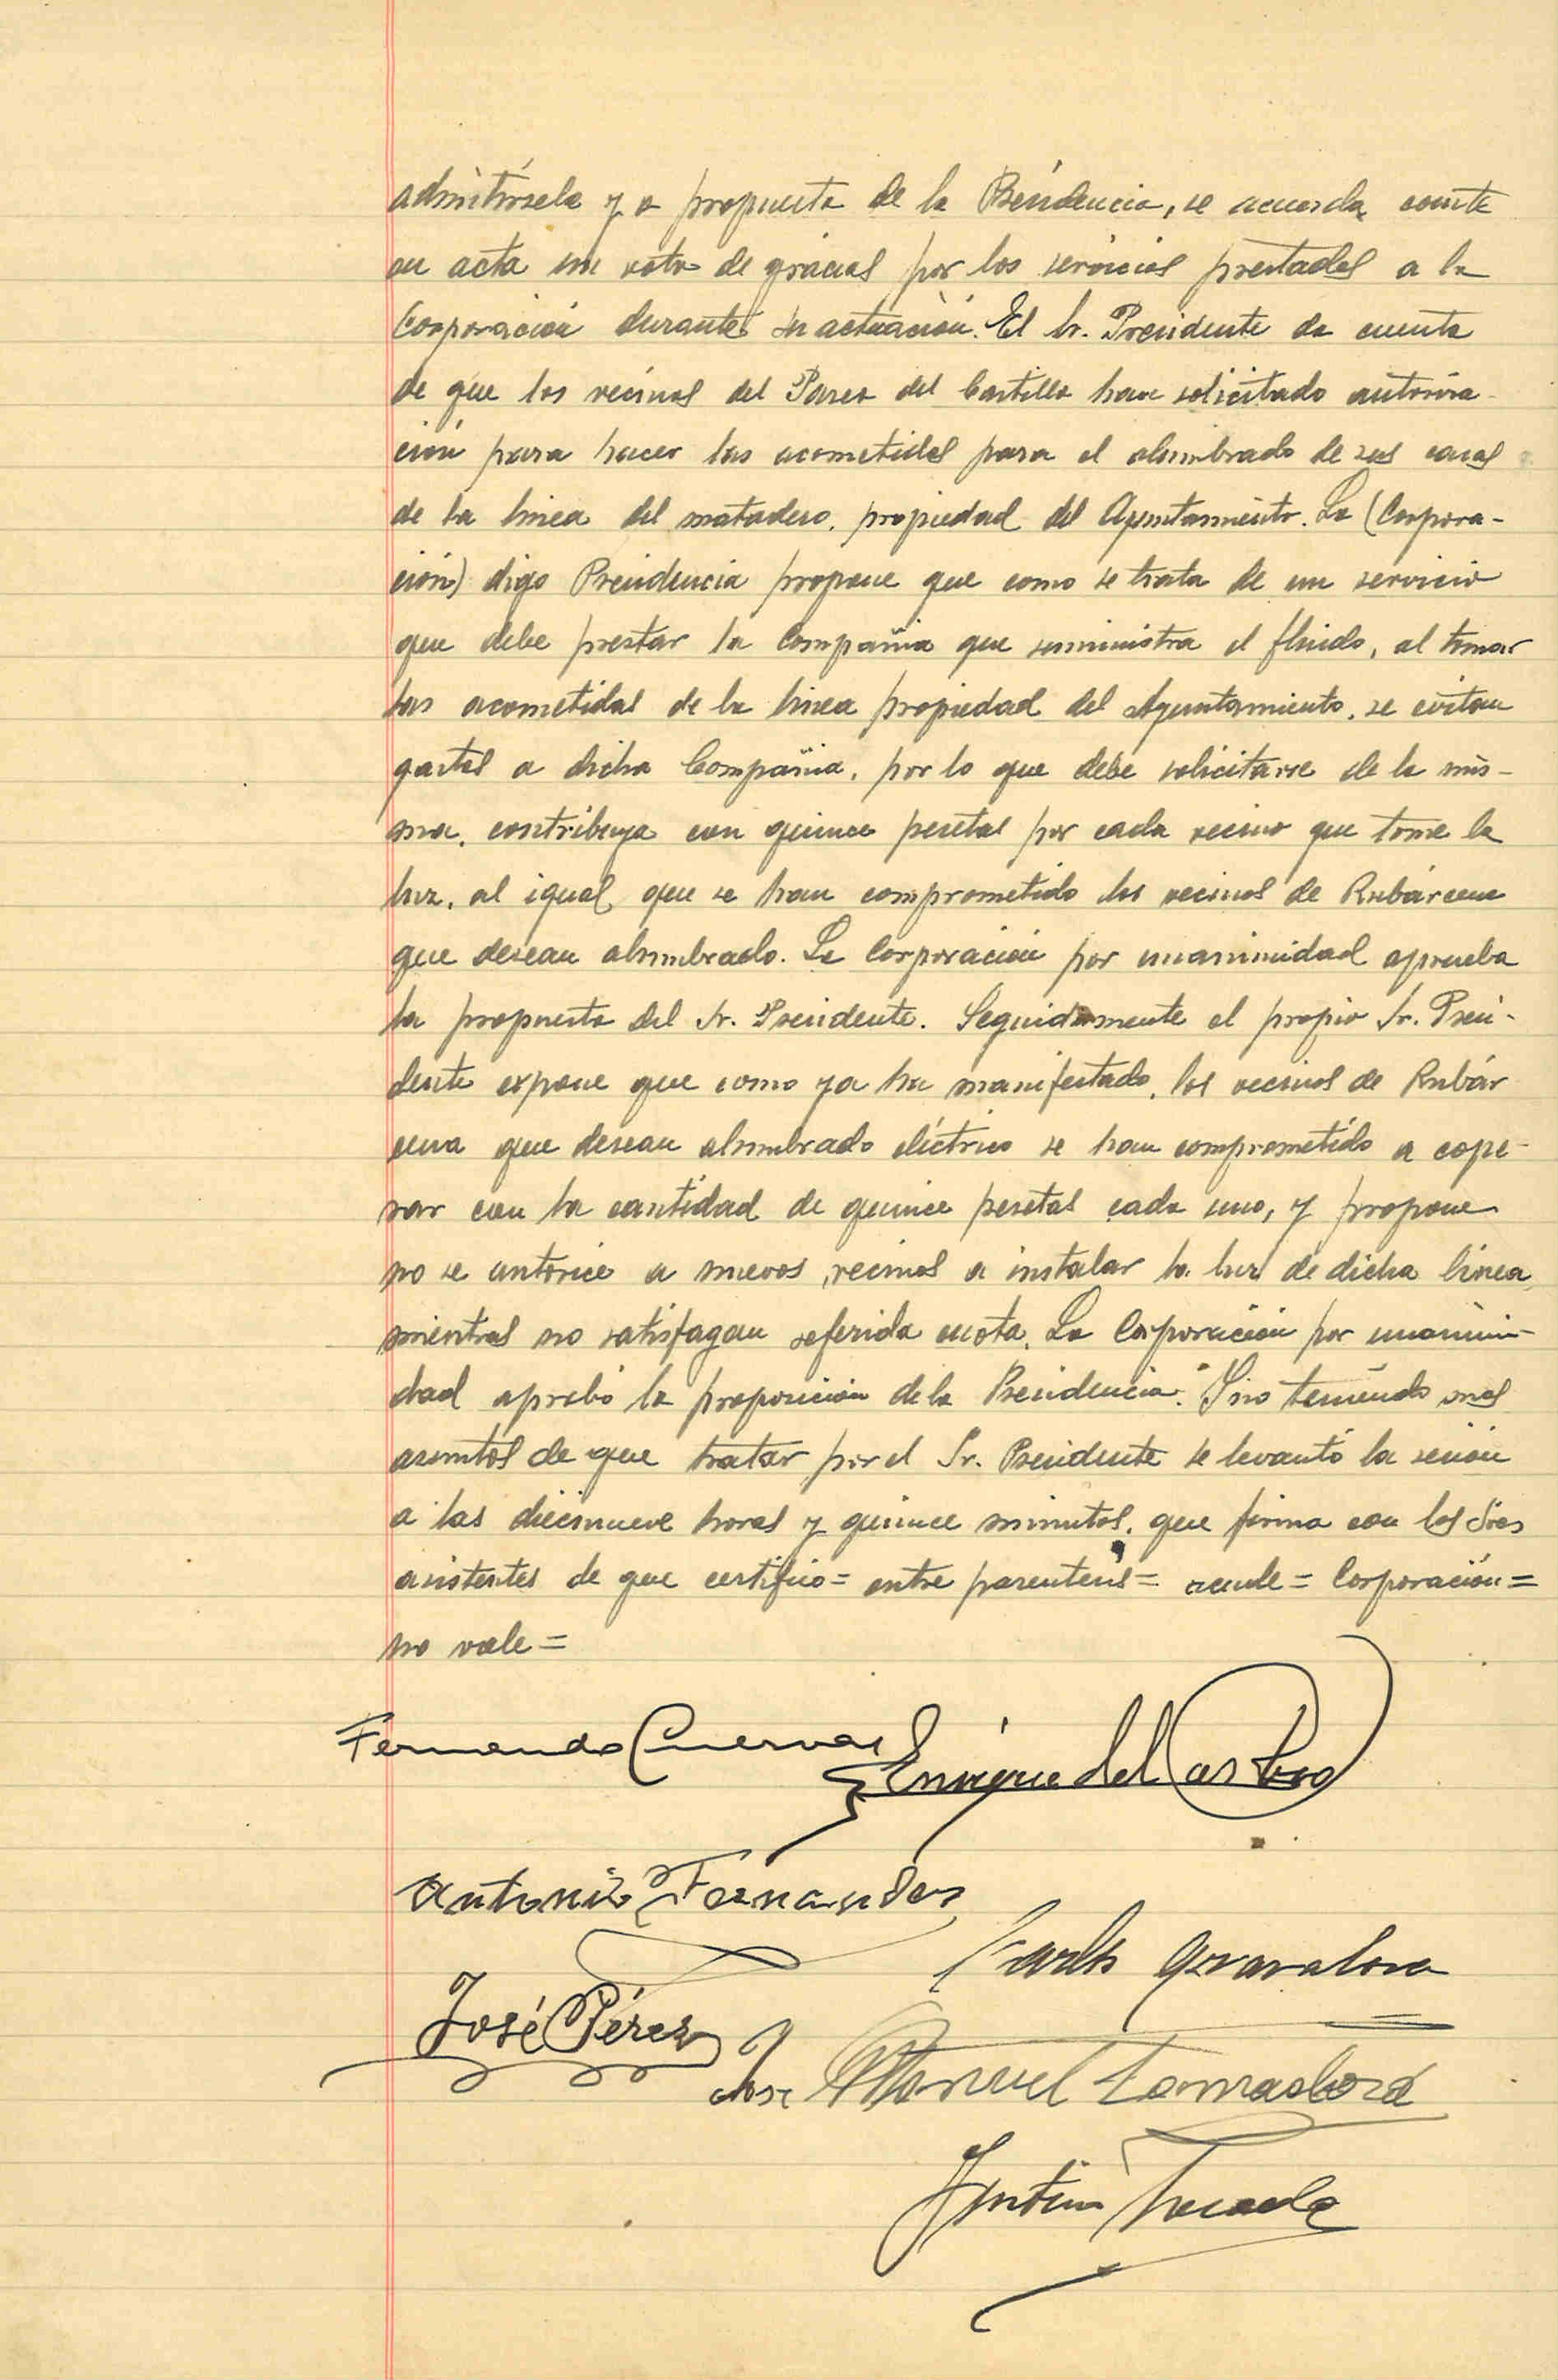 admitírsela y a propuesta de la Presidencia, se acuerda conste
en acta un voto de gracias por los servicios prestados a la
Corporación durante su actuación. El Sr. Presidente da cuenta
de que los vecinos del Paseo del Castillo han solicitado autoriza-
ción para hacer las acometidas para el alumbrado de sus casas
de la linea del matadero, propiedad del Ayuntamiento. La (Corpora-
ción) digo Presidencia propone que como se trata de un servicio
que debe prestar la Compañia que suministra el fluido, al tomar
las acometidas de la linea propiedad del Ayuntamiento, se evitan
gastos a dicha Compañia, por lo que debe solicitarse de la mis-
ma, contribuya con quince pesetas por cada vecino que tome la
luz, al igual que se han comprometido los vecinos de Rubárcena
que desean alumbrado. La Corporación por unanimidad aprueba
la propuesta del Sr. Presidente. Seguidamente el propio Sr. Presi-
dente expone que como ya ha manifestado, los vecinos de Rubár
cena que desean alumbrado eléctrico se han comprometido a cope-
rar con la cantidad de quince pesetas cada uno, y propone
no se autorice a nuevos vecinos a instalar la luz de dicha linea
mientras no satisfagan referida cuota. La Corporación por unanimi-
dad aprobó la proposición de la Presidencia. Y no teniendo mas
asuntos de que tratar por el Sr. Presidente se levantó la sesión
a las diecinueve horas y quince minutos, que firma con los Sres
asistentes de que certifico= entre parentesis= Corporación=
no vale=
Fernando Cuervas
Enrique del Castro
Antonio Fernandez
Carlos
José Pérez
Jose Manuel